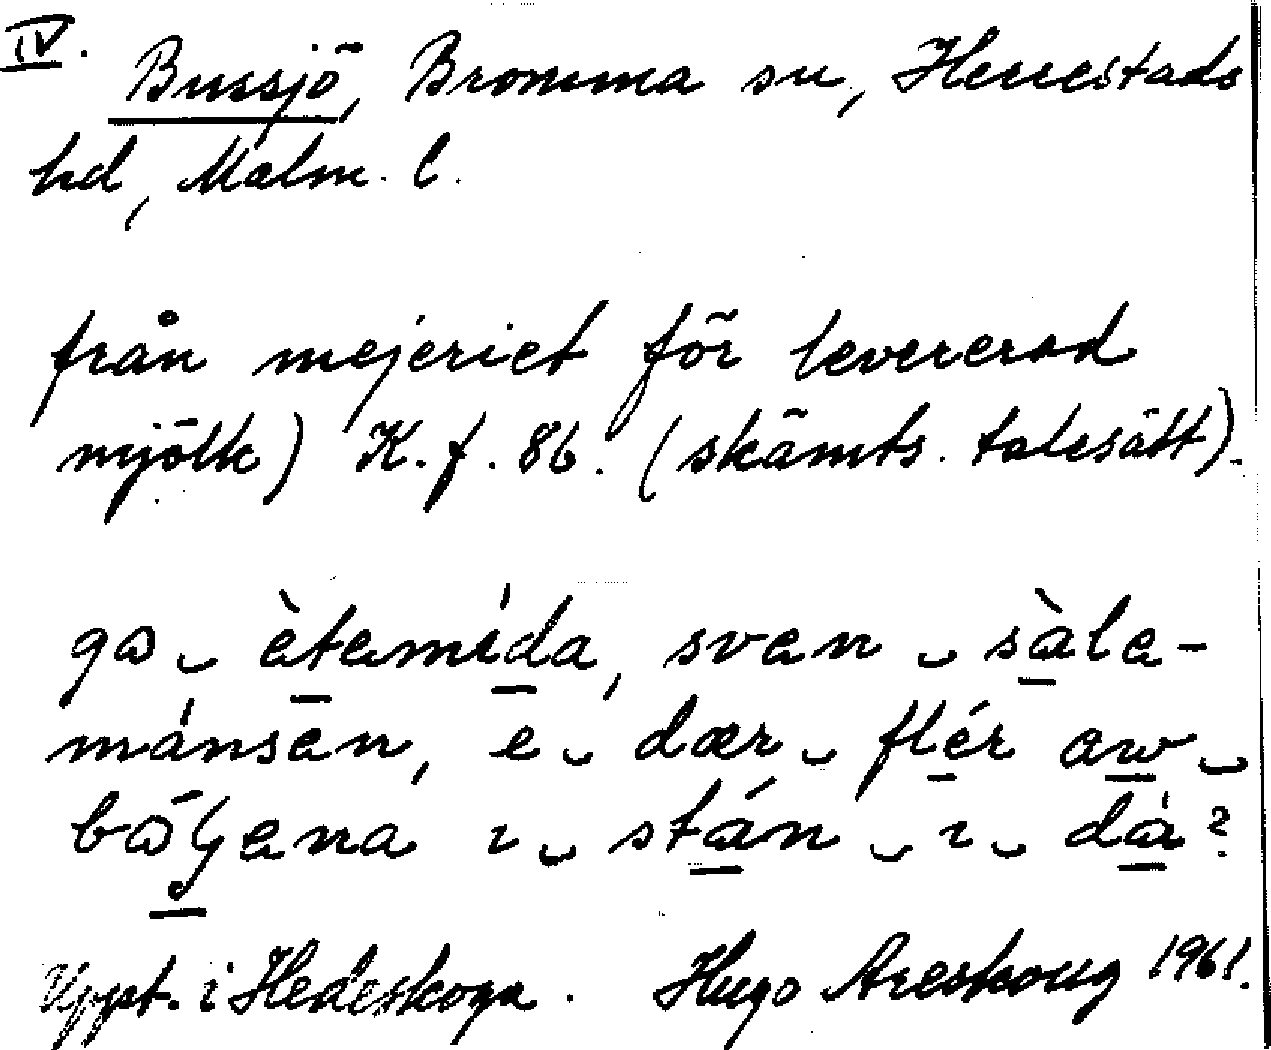 IV.
Bussjö, Bromma sn, Herrestads
hd, Malm. l.
från mejeriet för levererad
mjölk) K. f. 86. (skämts. talesätt).
ga ‿ ètamída, svan ‿ sàla-
mánsan, e ‿ dær ‿ flér aw ‿
i ‿ stán ‿ i ‿ dà?
Uppt. i Hedeskoga. Hugo Areskoug 1961.